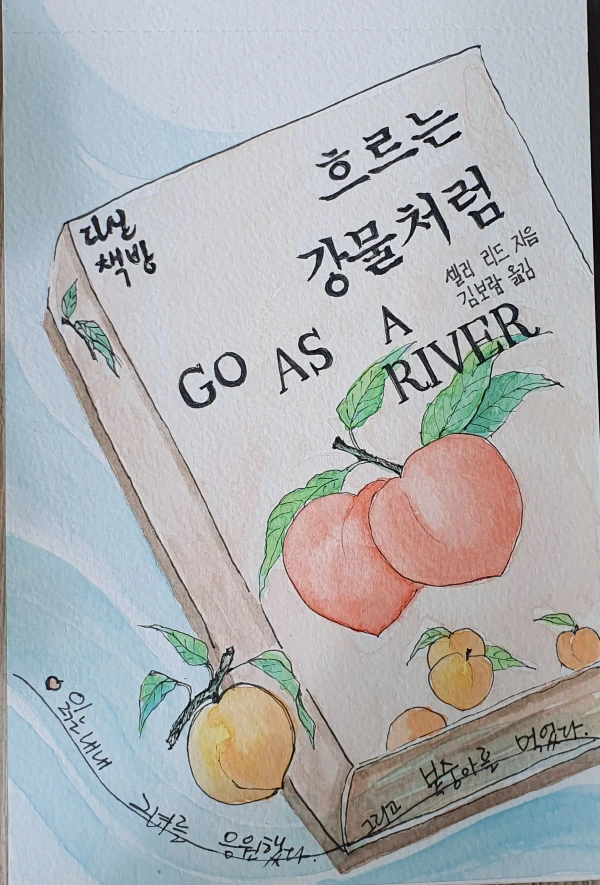 흐르는
강물처럼
다산
책방
셸리 리드 지음
김보람 옮김
GO AS A
RIVER
읽는내내
그녀를 응원했다.
그리고 복숭아를 먹었다.